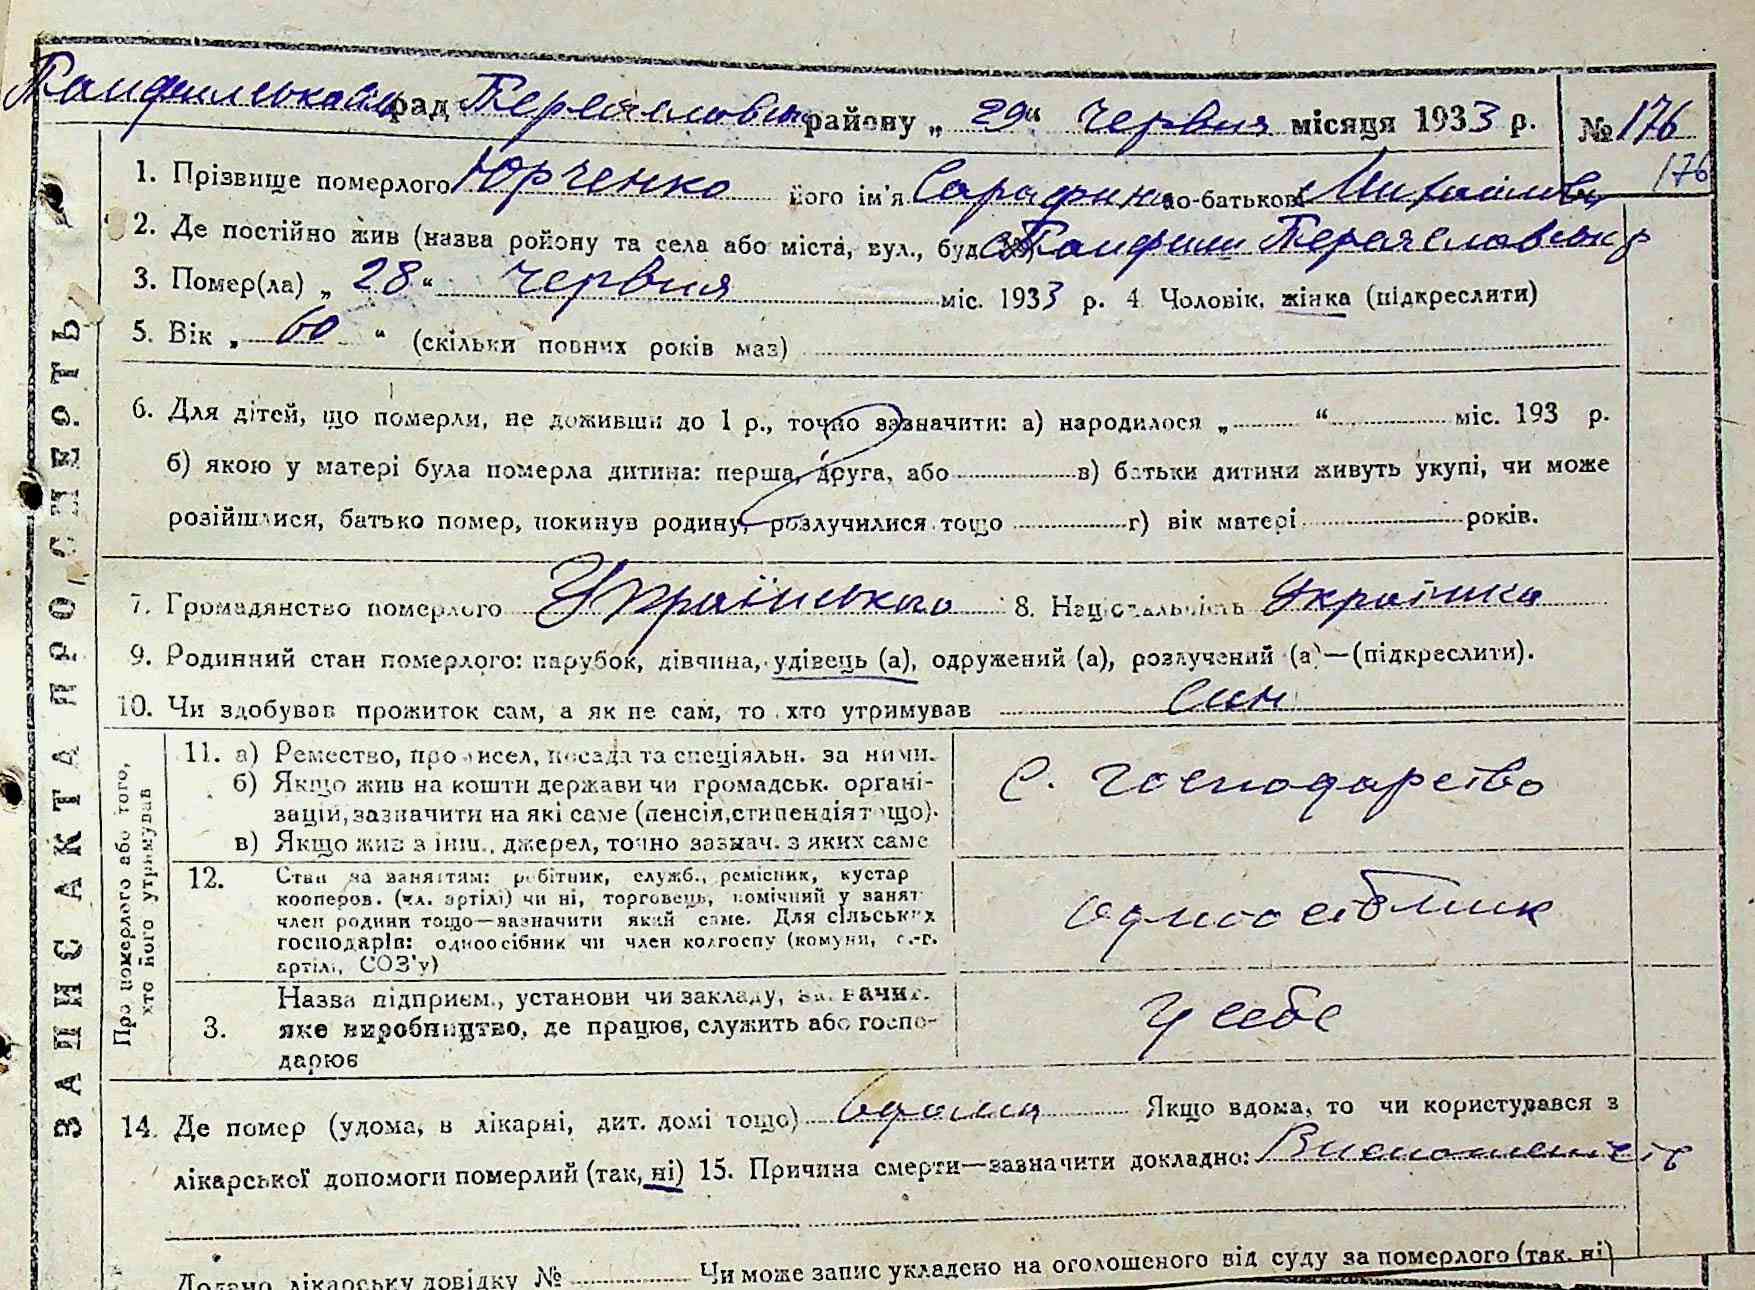 ЗАПИС АКТА ПРО СМЕРТЬ
рад Переяславськ району „ 29 “ Червня місяця 1933 р. № 176
176
1. Прізвище померлого Юрченко його ім'я Сарафина по-батькові Михайлівн
2. Де постійно жив (назва ройону та села або міста, вул., буд. с. Панфили Переяславськ р
3. Помер(ла) „ 28 “ червня міс. 1933 р. 4 Чоловік, жінка (підкреслити)
5. Вік „ 60 “ (скільки повних років має)
6. Для дітей, що померли, не доживши до 1 р., точно зазначити: а) народилося „ “ міс. 193 р.
б) якою у матері була померла дитина: перша, друга, або в) батьки дитини живуть укупі, чи може
розійшлися, батько помер, покинув родину, розлучилися тощо г) вік матері років.
7. Громадянство померлого Українського 8. Національність Українка
9. Родинний стан померлого: парубок, дівчина, удівець (а), одружений (а), розлучений (а)—(підкреслити).
10. Чи здобував прожиток сам, а як не сам, то хто утримував син
Про померлого або того,
хто його утримував
11. а) Ремество, промисел, посада та спеціяльн. за ними.
б) Якщо жив на кошти держави чи громадськ. органі-
зацій, зазначити на які саме (пенсія, стипендія тощо).
в) Якщо жив з інш., джерел, точно зазнач. з яких саме
С. господарство
12. Стан за заняттям: робітник, служб., ремісник, кустар
кооперов. (чл. артілі) чи ні, торговець, помічний у занят
член родини тощо—зазначити який саме. Для сільських
господарів: одноосібник чи член колгоспу (комуни, с.-г.
артілі, СОЗ'у)
одноосібник
3. Назва підприєм., установи чи закладу, зазначит.
яке виробництво, де працює, служить або госпо-
дарює
у себе
14. Де помер (удома, в лікарні, дит. домі тощо) вдома Якщо вдома, то чи користувався з
лікарської допомоги померлий (так, ні) 15. Причина смерти—зазначити докладно:
Додано лікарську довідку № Чи може запис укладено на оголошеного від суду за померлого (так, ні)